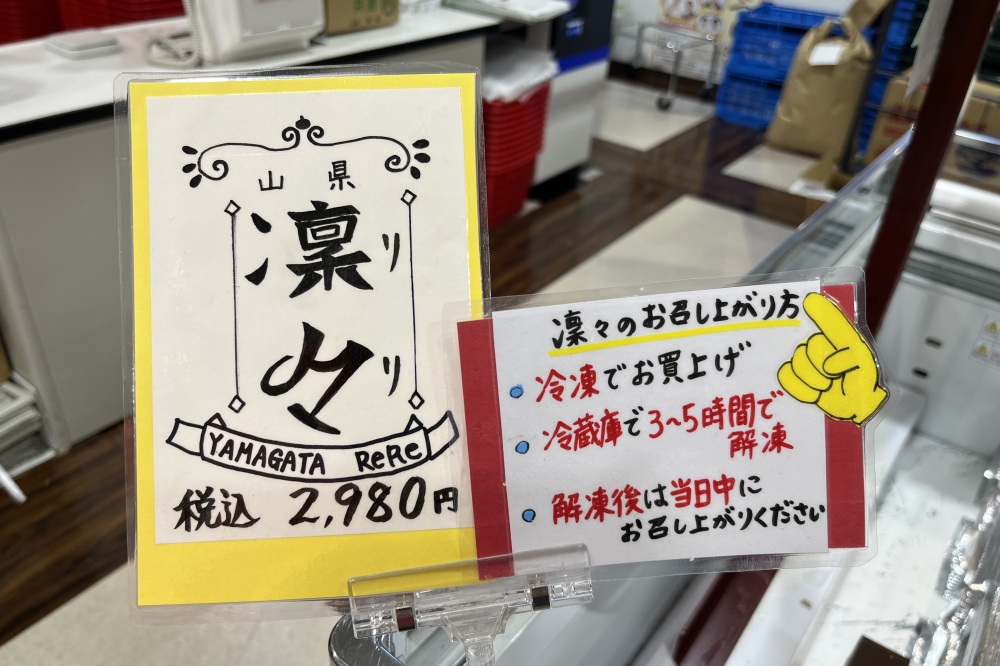 山県
凛々
リリ
YAMAGATA ReRe
税込 2,980円
凛々のお召し上がり方
冷凍でお買上げ
冷蔵庫で3~5時間で
解凍
解凍後は当日中に
お召し上がりください